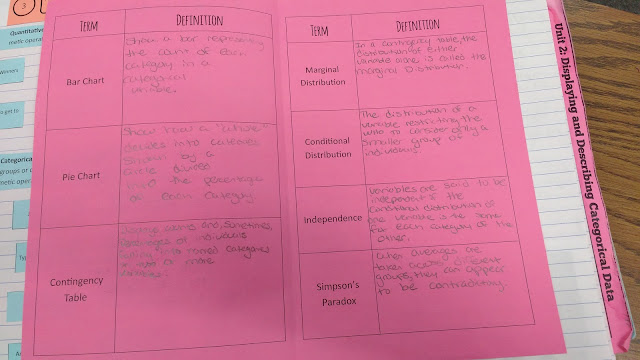 3
Quantitative
metic operat
winners
n get to
Categorical
groups or c
metic operat
TERM
DEFINITION
Bar Chart
Show a bar representing
the count of each
category in a
categorical
variable.
Pie Chart
Show how a "whole"
divides into categories
shown by a
circle divided
into the percentage
of each category
Contingency
Table
counts and, sometimes,
percentages of individuals
falling into named categories
on two or more
variables.
TERM
DEFINITION
Marginal
Distribution
In a contingency table, the
distribution of either
variable alone is called the
marginal Distribution.
Conditional
Distribution
The distribution of a
variable restricting the
who to consider only a
smaller group of
individuals.
Independence
Variables are said to be
independent if the
conditional distribution of
one variable is the same
for each category of the
other.
Simpson's
Paradox
when averages are
taken across different
groups, they can appear
to be contradictory.
Unit 2: Displaying and Describing Categorical Data